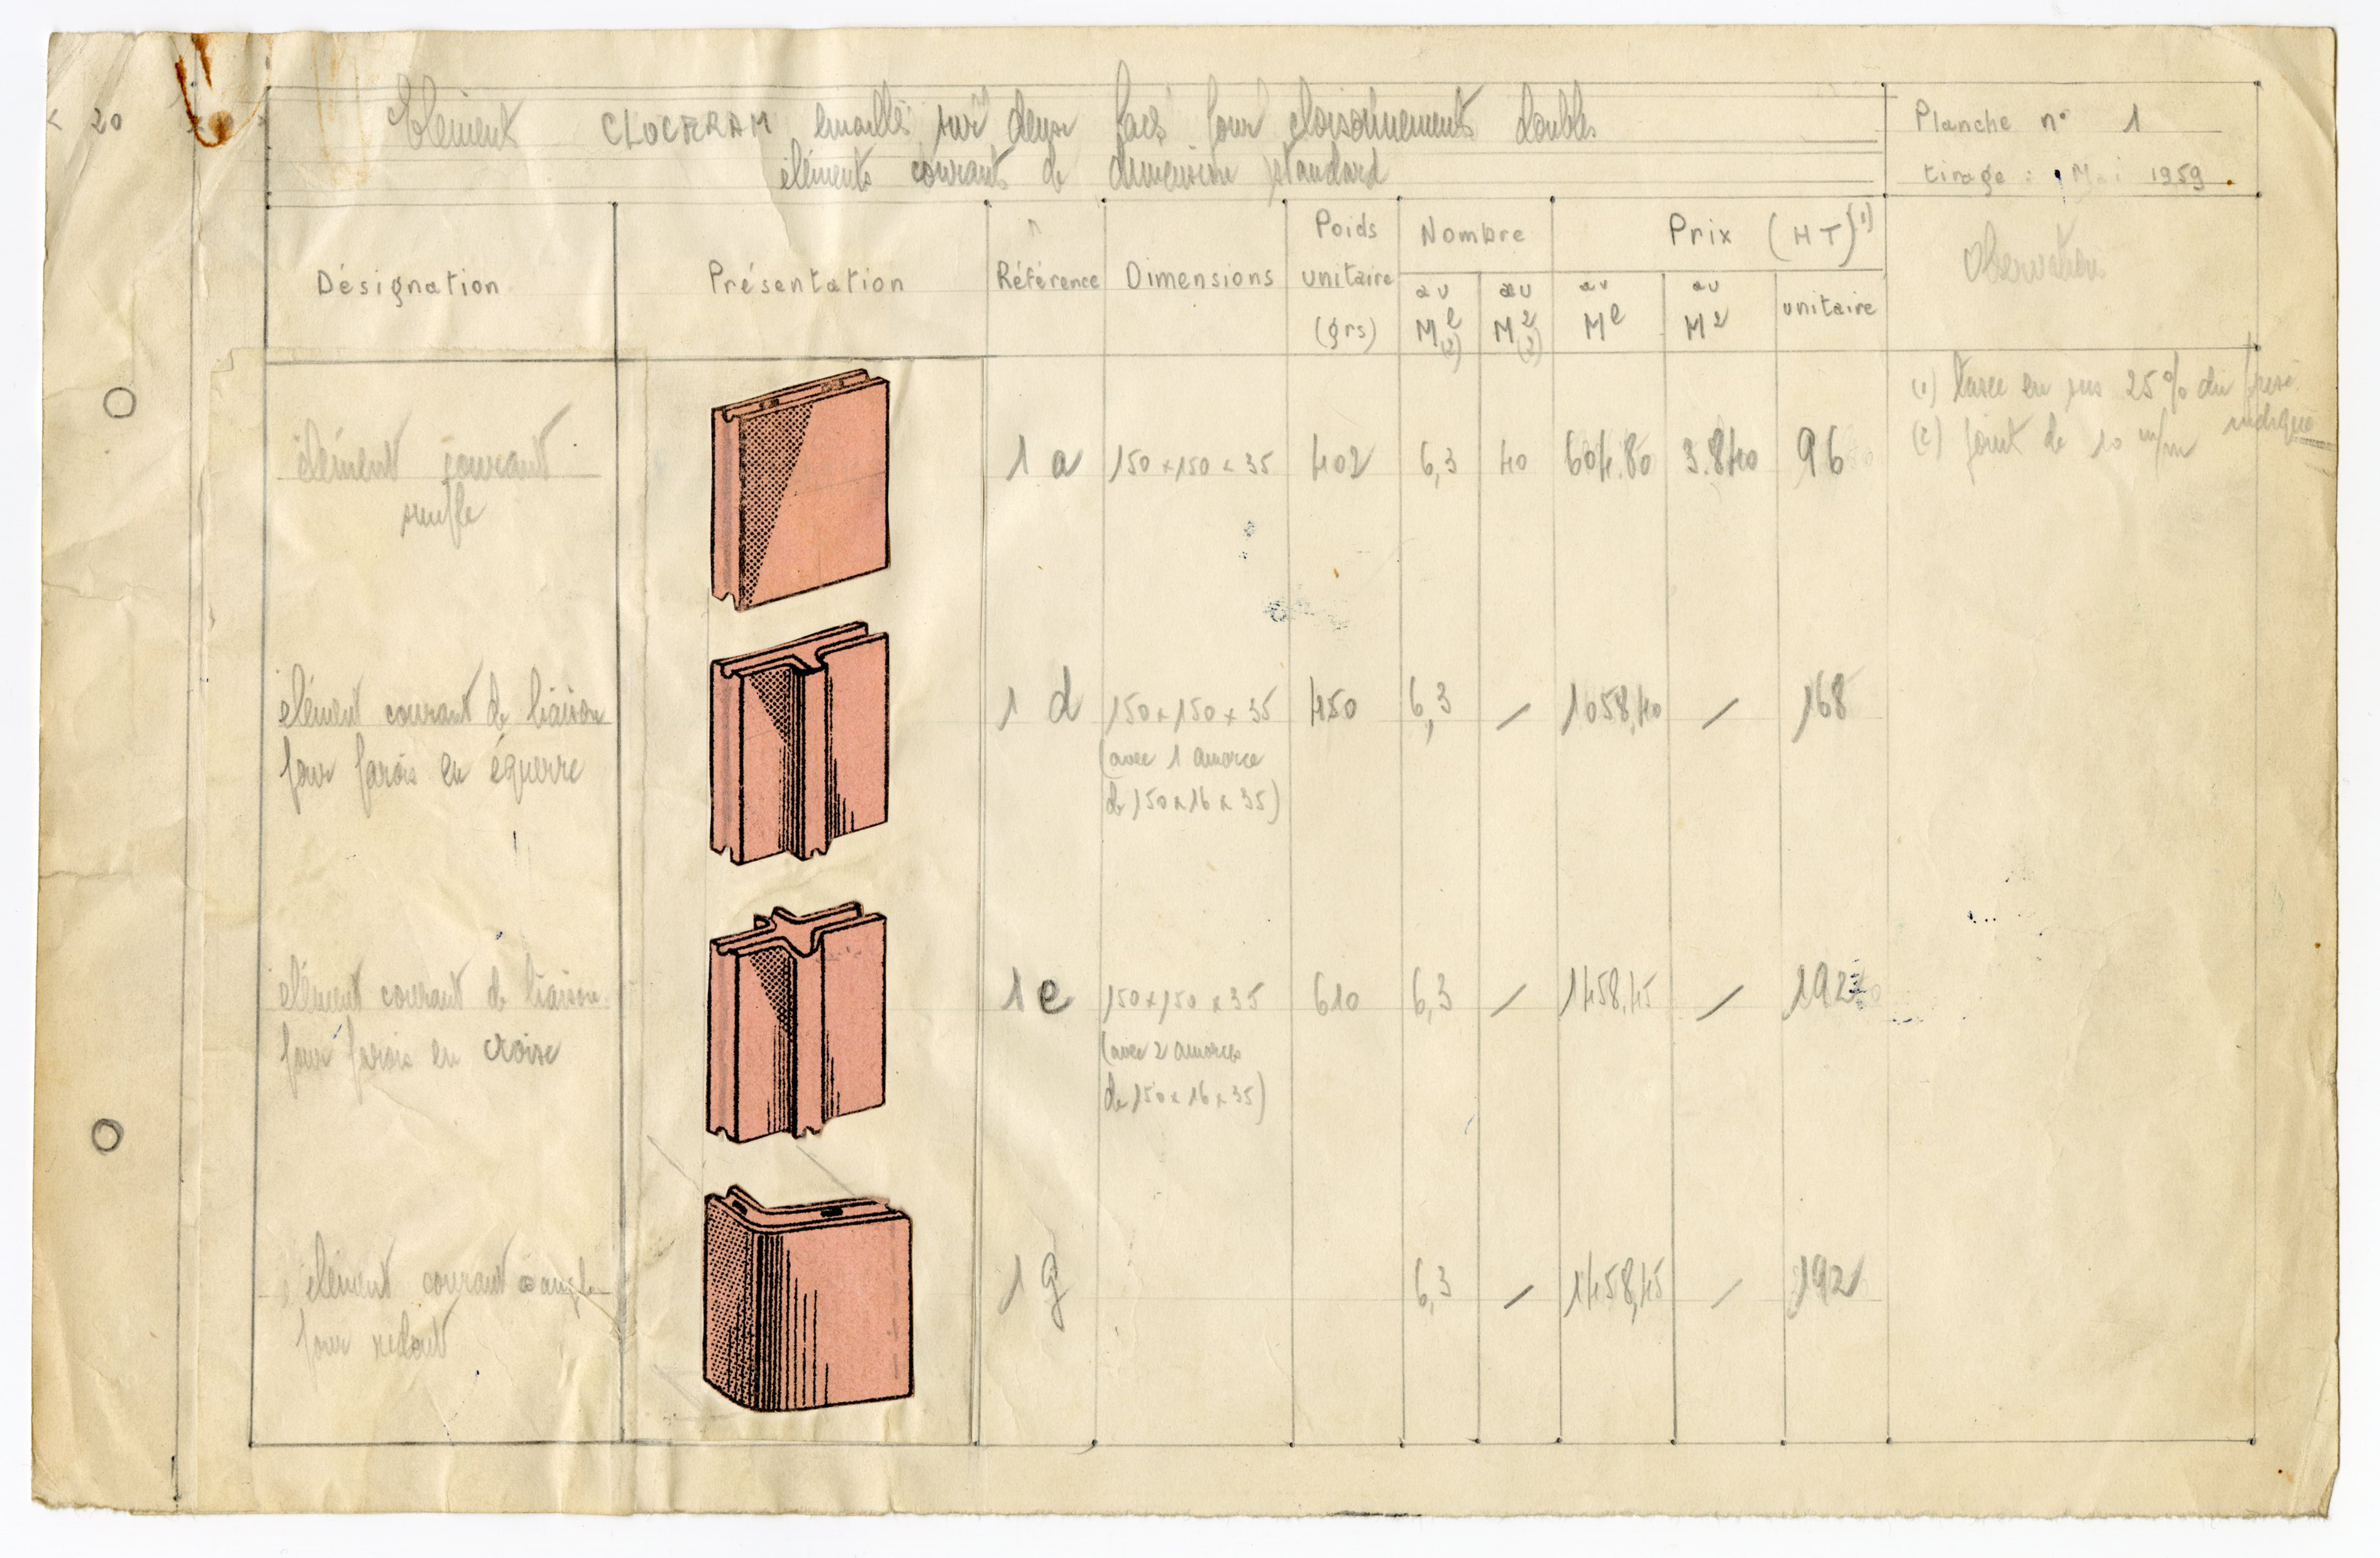 < 20
Elément CLOCERAM émaillés sur deux faces pour cloisonnements doubles
éléments courants de dimension standard
Planche n° 1
tirage : Mai 1959.
Désignation
Présentation
Référence
Dimensions
Poids
unitaire
(grs)
Nombre
au
Ml
(2)
au
M2
(2)
Prix (HT)(1)
au
Ml
au
M2
unitaire
Observations
élément courant
simple
1 a
150 x 150 x 35
402
6,3
40
604.80
3.840
96
(1) taxe en sus 25% du prix
indiqué
(2) joint de 10 m/m
élément courant de liaison
pour parois en équerre
1 d
150 x 150 x 35
(avec 1 amorce
de 150 x 16 x 35)
450
6,3
/
1058,40
/
168
élément courant de liaison
pour parois en croix
1 e
150 x 150 x 35
(avec 2 amorces
de 150 x 16 x 35)
610
6,3
/
1458,45
/
192
élément courant angle
pour
1 g
6,3
/
1458,45
/
192